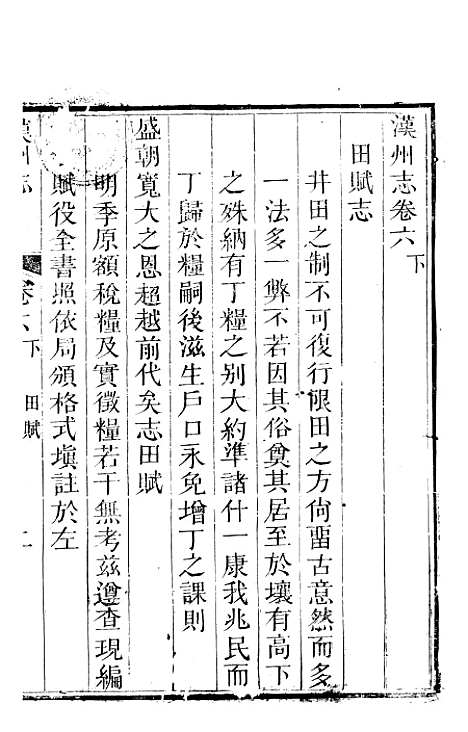 漢州志卷六下
田賦志
井田之制不可復行限田之方尙畱古意然而多
一法多一弊不若因其俗奠其居至於壤有高下
之殊納有丁糧之别大約準諸什一康我兆民而
丁歸於糧嗣後滋生戶口永免增丁之課則
盛朝寬大之恩超越前代矣志田賦
明季原額稅糧及實徵糧若干無考兹遵查現編
賦役全書照依局頒格式塡註於左
漢州志
卷六下
田賦